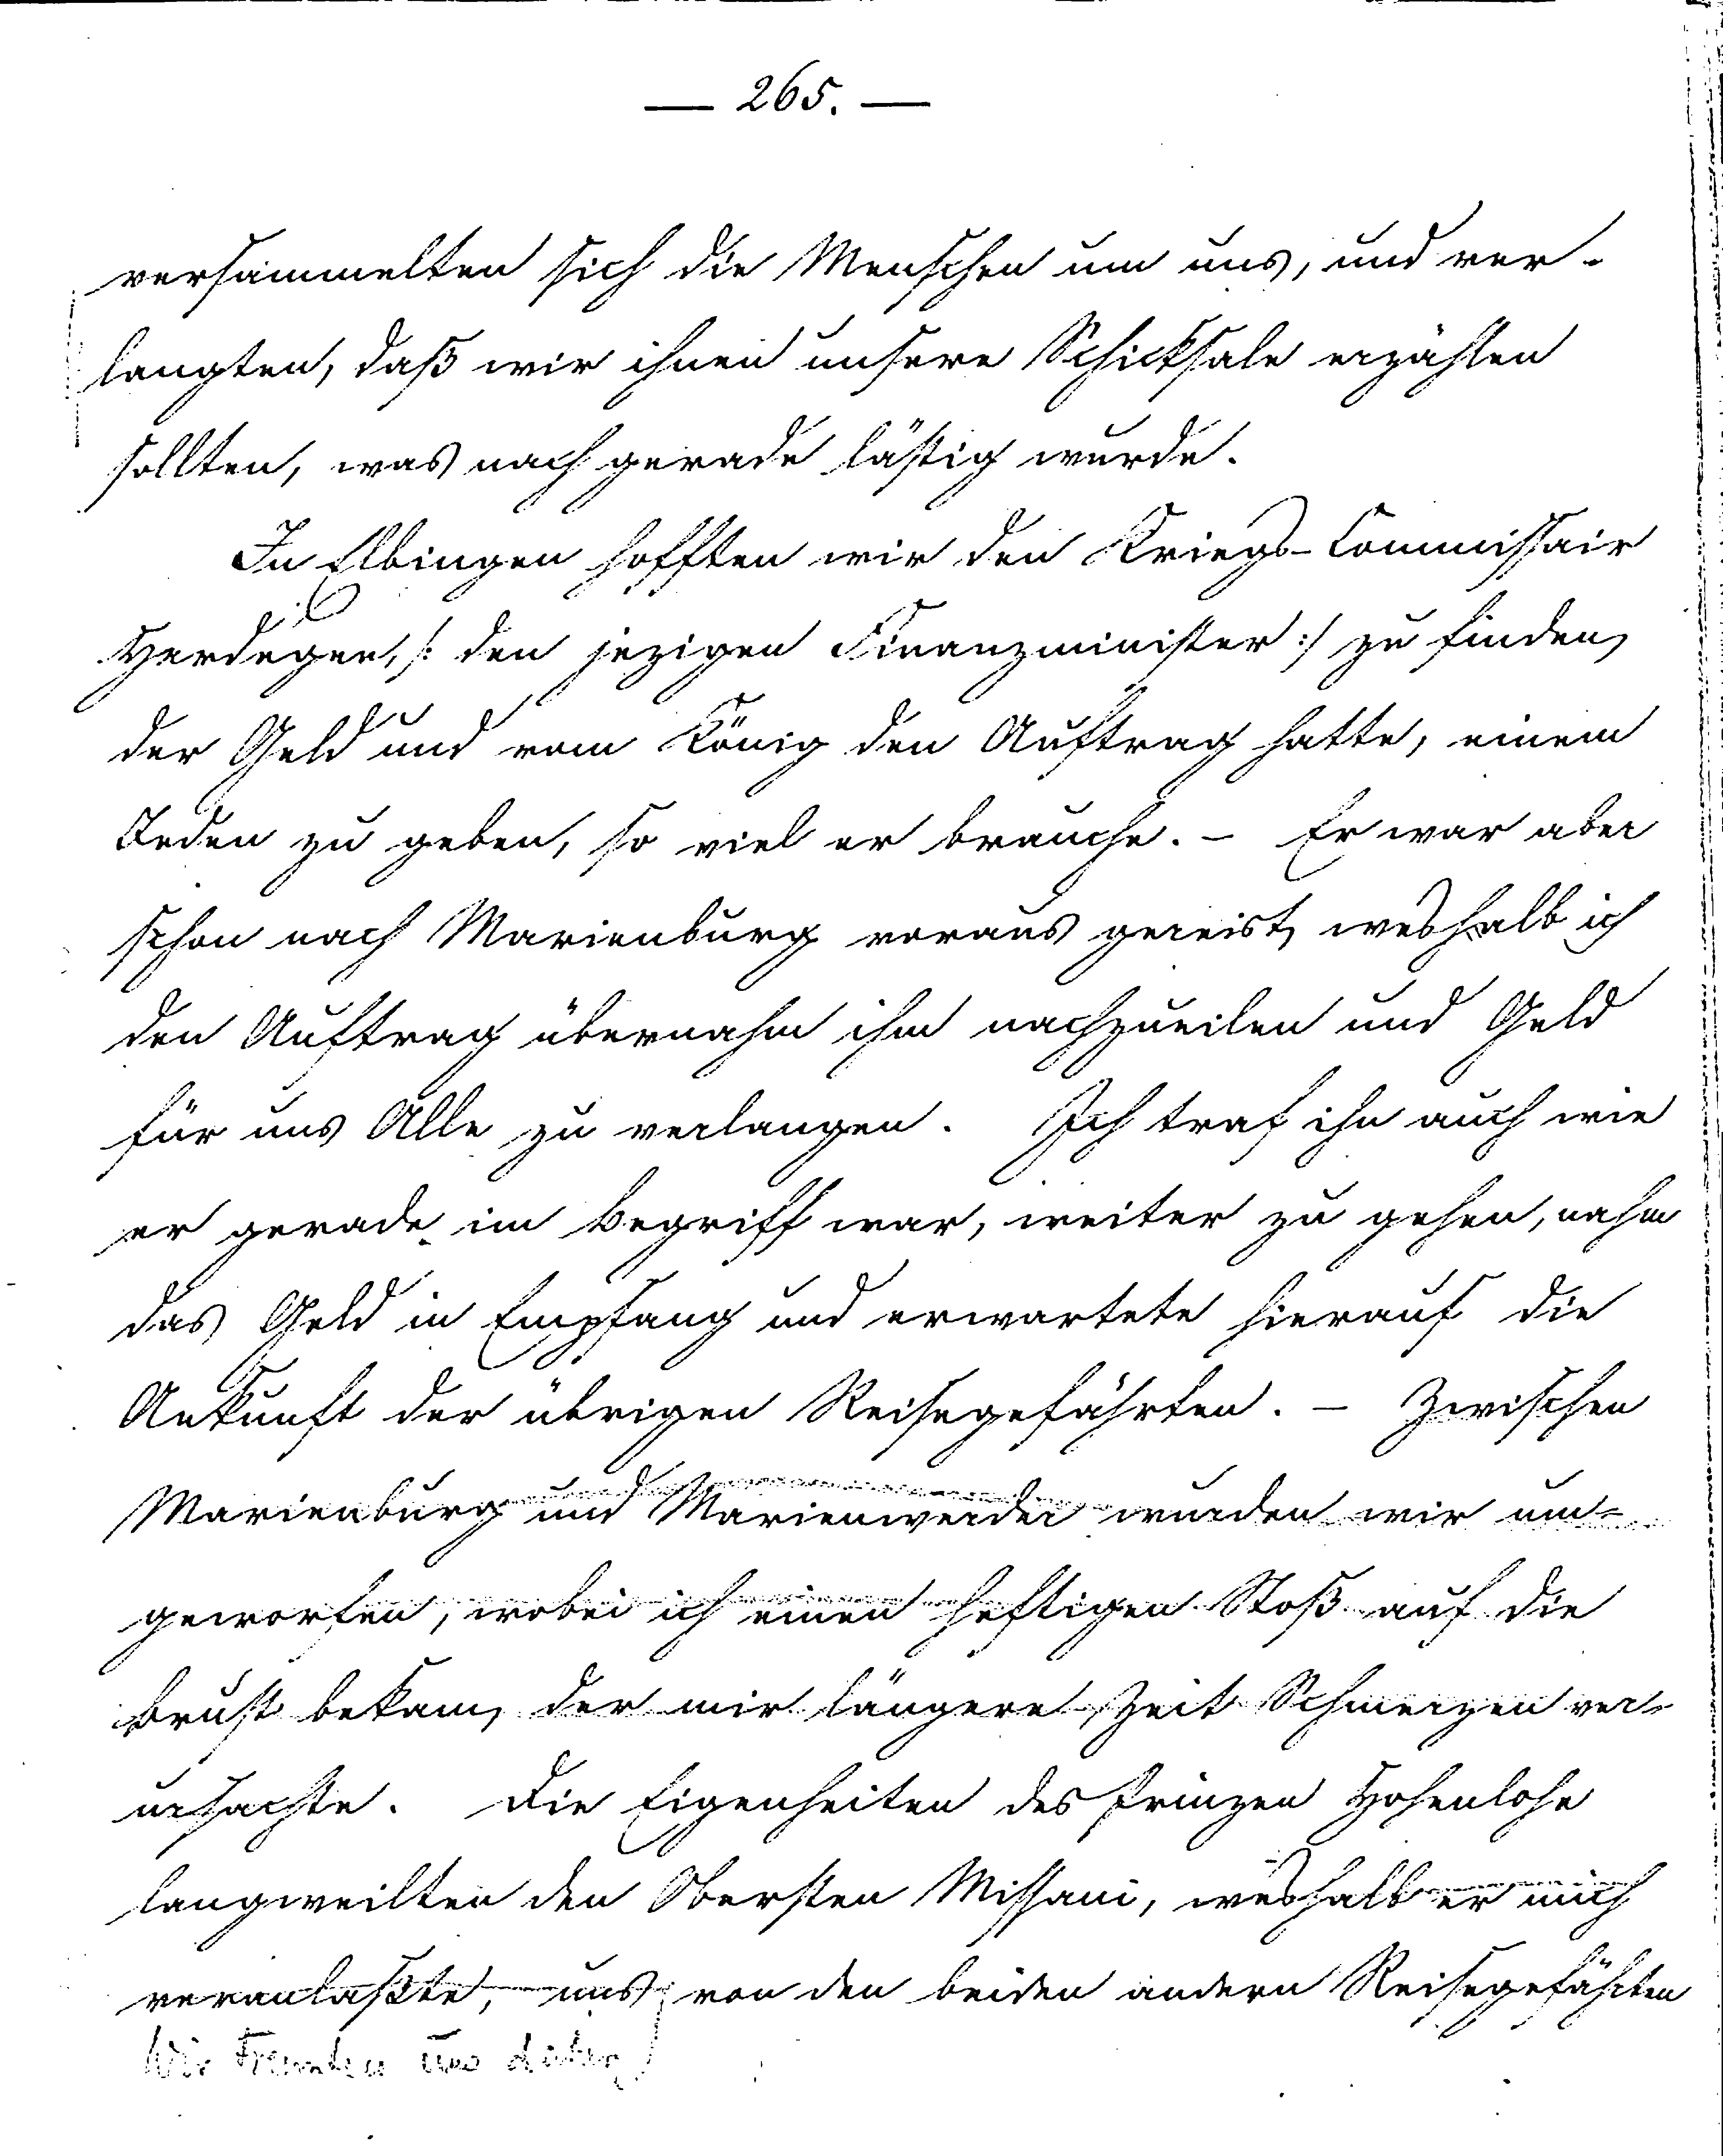 — 265. —
versammelten sich die Menschen um uns, und ver-
langten, daß wir ihnen unsere Schicksale erzählen
sollten, was nach gerade lästig wurde.
In Elbingen hofften wir den Kriegs-Commissair
Herdegen, /: den jezigen Finanzminister :/ zu finden,
der Geld und vom König den Auftrag hatte, einem
Jeden zu geben, so viel er brauche. – Er war aber
schon nach Marienburg voraus gereist, weshalb ich
den Auftrag übernahm ihm nachzueilen und Geld
für uns Alle zu verlangen. Ich traf ihn auch wie
er gerade im Begriff war, weiter zu gehen, nahm
das Geld in Empfang und erwartete hierauf die
Ankunft der übrigen Reisegefährten. – Zwischen
Marienburg und Marienwerder wurden wir um-
geworfen, wobei ich einen heftigen Stoß auf die
Brust bekam, der mir längere Zeit Schmerzen ver-
ursachte. Die Eigenheiten des Prinzen Hohenlohe
langweilten den Obersten Missani, weshalb er mich
veranlaßte, uns von den beiden andern Reisegefährten
Wir trennten uns daher